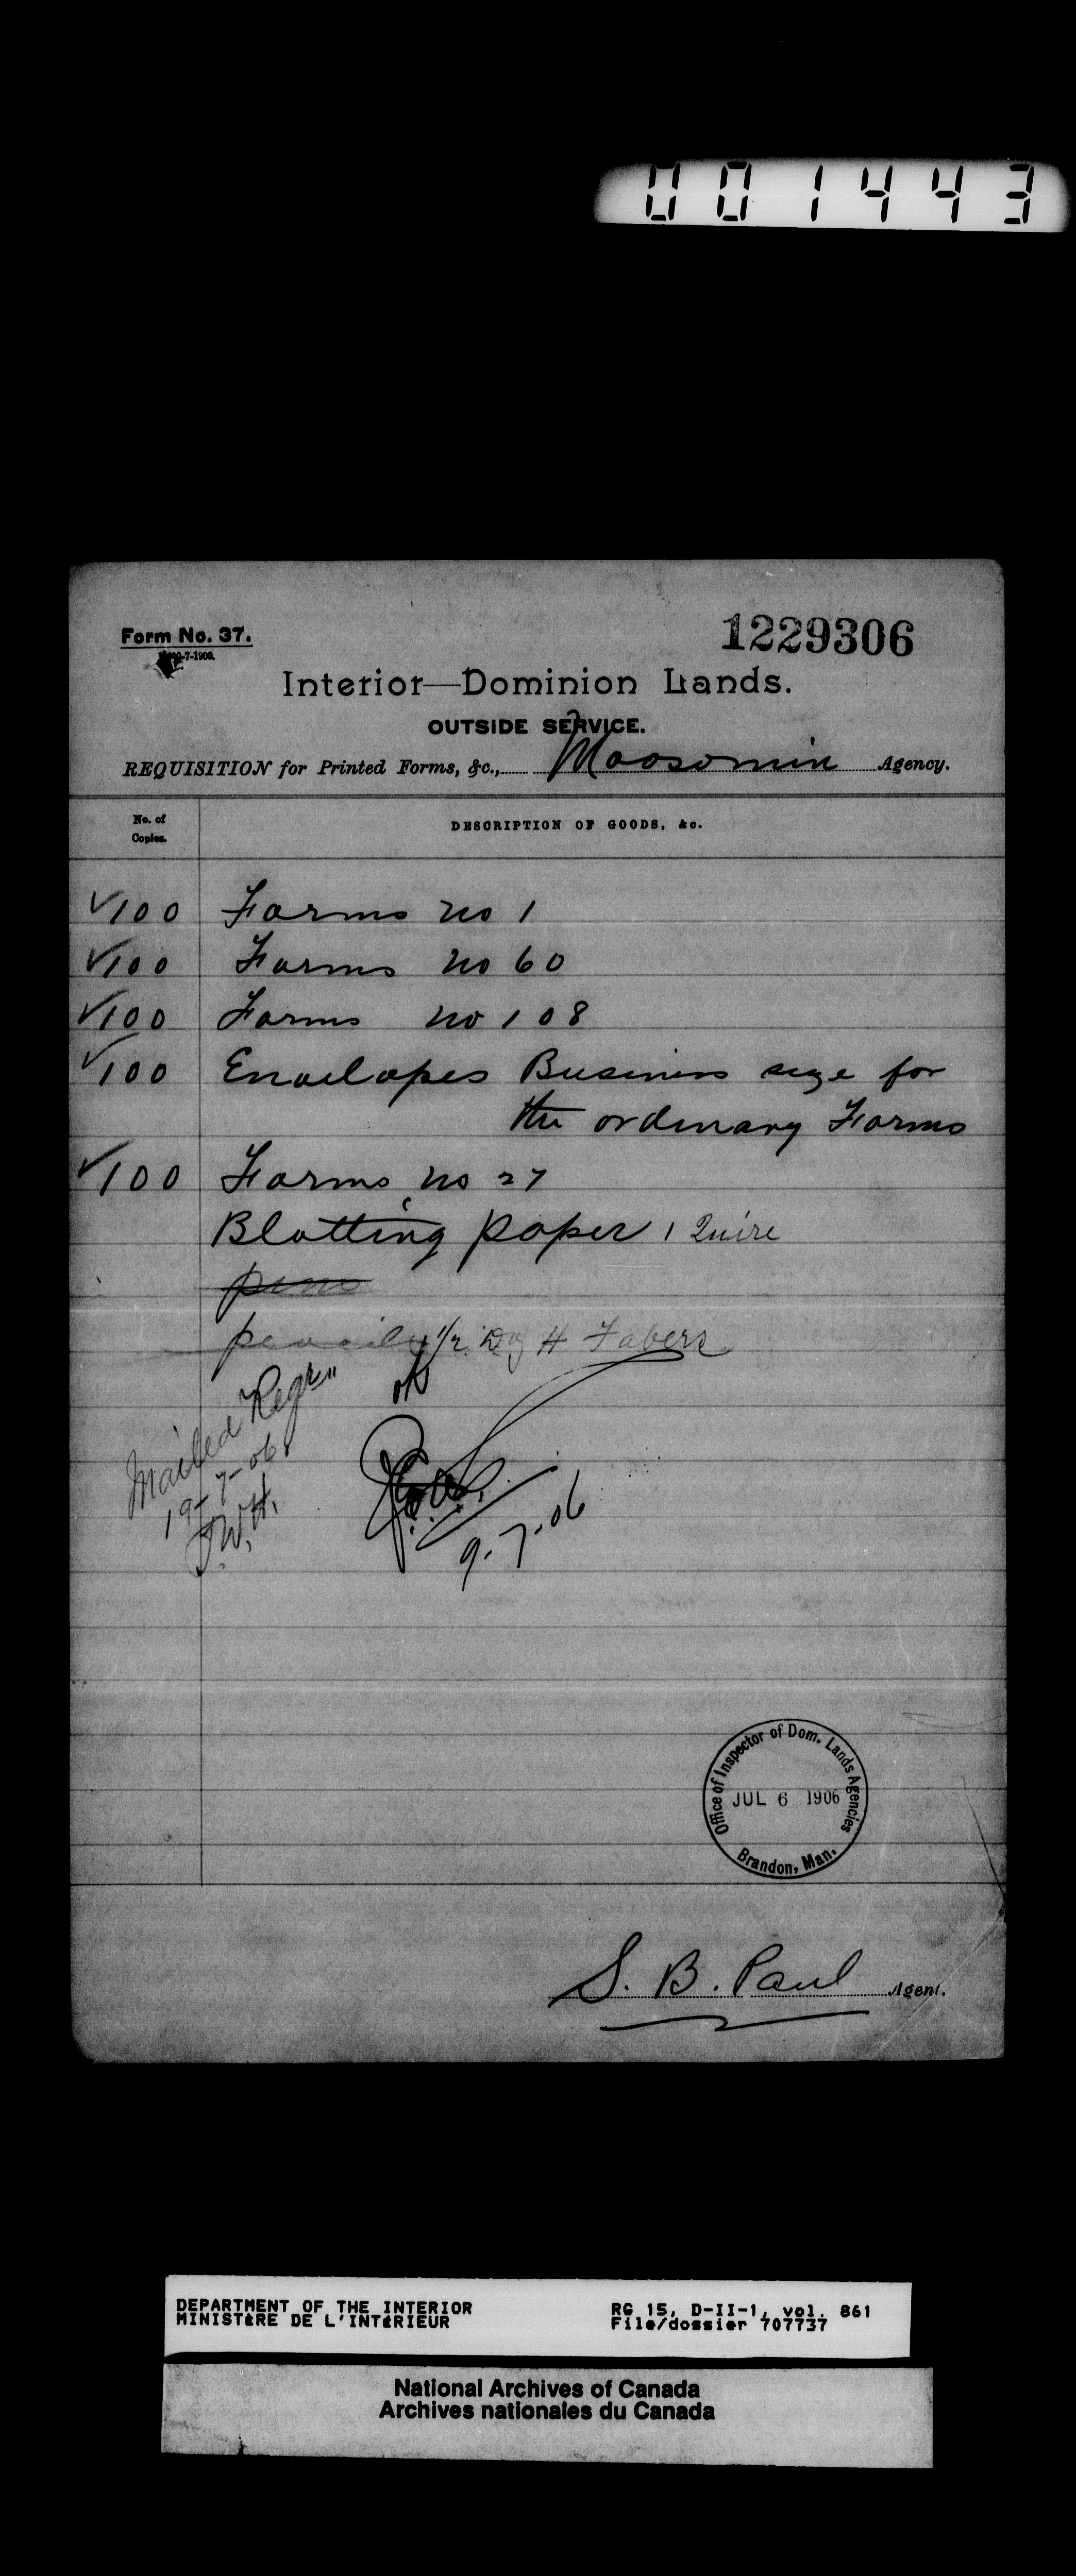 001443
Form No. 37.
1229306
Interior—Dominion Lands.
OUTSIDE SERVICE.
REQUISITION for Printed Forms, &c., Moosomin Agency.
No. of Copies.
DESCRIPTION OF GOODS, &c.
✓100 Forms no 1
✓100 Forms no 60
✓100 Forms no 108
✓100 Envelopes Business size for
the ordinary Forms
✓100 Forms no 27
Blotting paper 1 Quire
pens
pencils 1/2 Doz H Fabers
Mailed Regr
19-7-06
J.W.H.
OK
9.7.06
Office of Inspector of Dom. Lands Agencies
JUL 6 1906
Brandon, Man.
S. B. Paul Agent.
DEPARTMENT OF THE INTERIOR
MINISTÈRE DE L'INTÉRIEUR
RG 15, D-II-1, vol. 861
File/dossier 707737
National Archives of Canada
Archives nationales du Canada